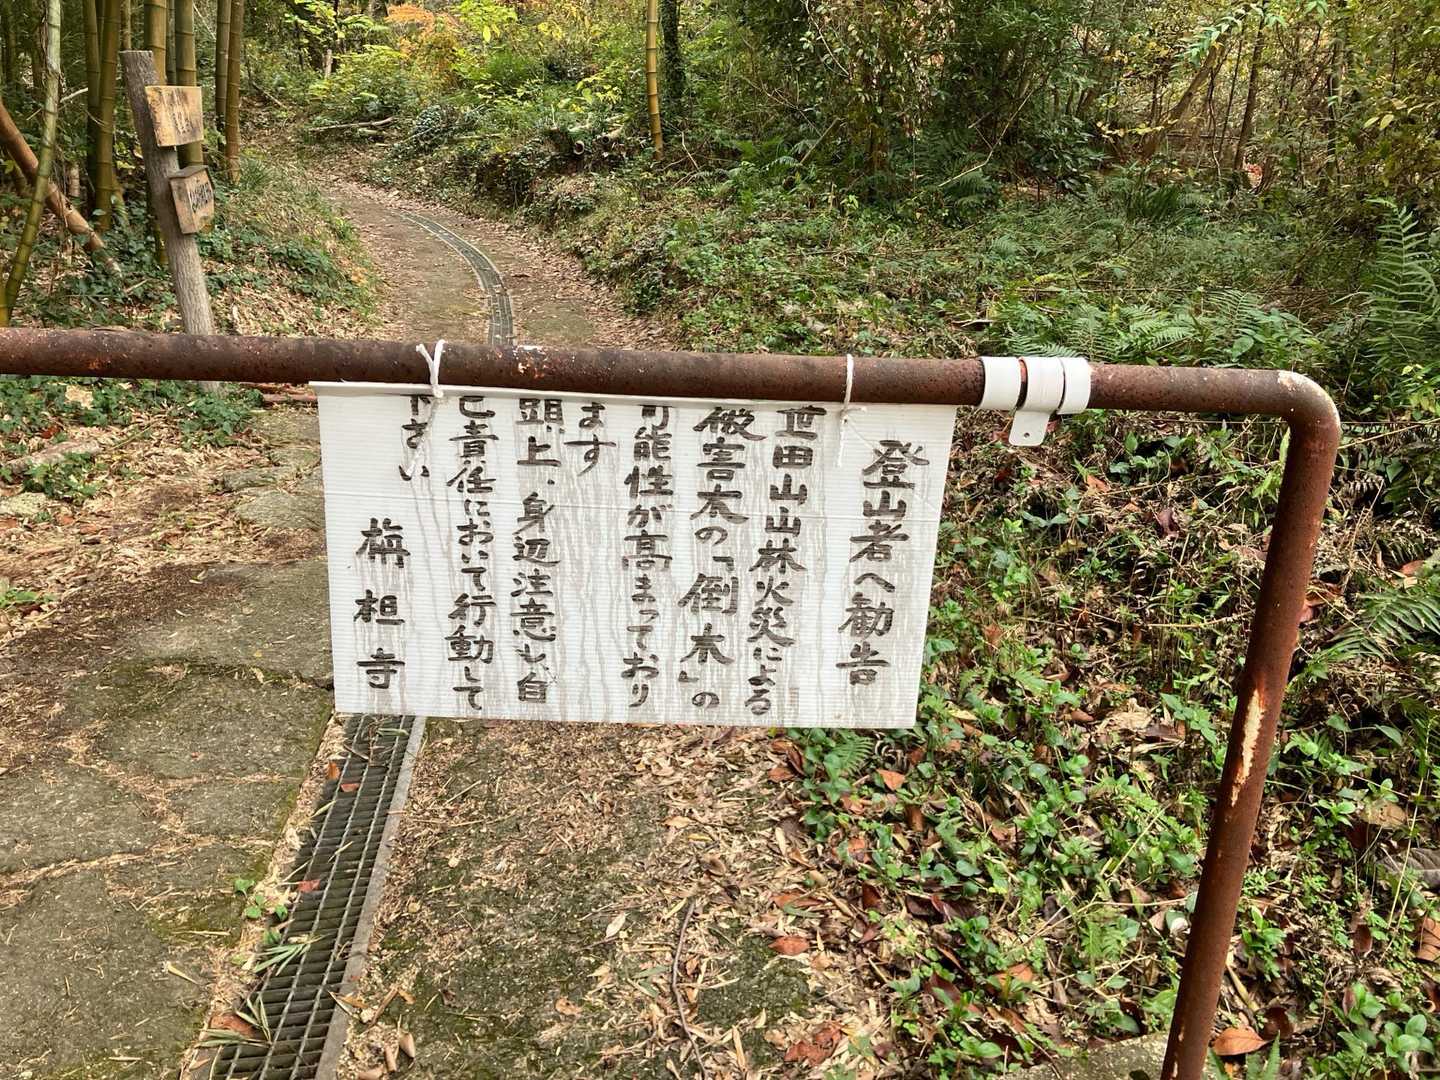 登山者へ勧告
世田山山林火災による
被害木の「倒木」の
可能性が高まっており
ます
頭上、身辺注意し、自
己責任において行動して
下さい
栴檀寺